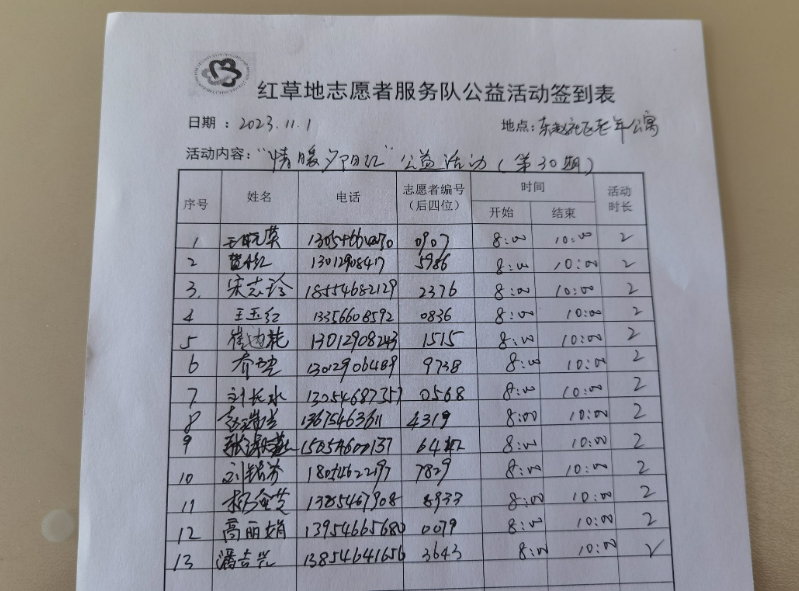 红草地志愿者服务队公益活动签到表
日期：2023.11.1 地点：东赵社区老年公寓
活动内容："情暖夕阳红"公益活动（第30期）
序号 姓名 电话 志愿者编号（后四位） 时间 活动时长
开始 结束
1 0907 8:00 10:00 2
2 13012908417 5986 8:00 10:00 2
3. 宋志玲 18554682129 2376 8:00 10:00 2
4 王玉红 13356608592 0836 8:00 10:00 2
5 13012908243 1515 8:00 10:00 2
6 13012906489 9738 8:00 10:00 2
7 刘长水 13054687357 0568 8:00 10:00 2
8 13675463611 4319 8:00 10:00 2
9 15054600137 8:00 10:00 2
10 刘 18054622197 7829 8:00 10:00 2
11 杨金芝 1385467908 8933 8:00 10:00 2
12 高丽娟 13954665680 0079 8:00 10:00 2
13 潘吉兴 13854641656 3643 8:00 10:00 2